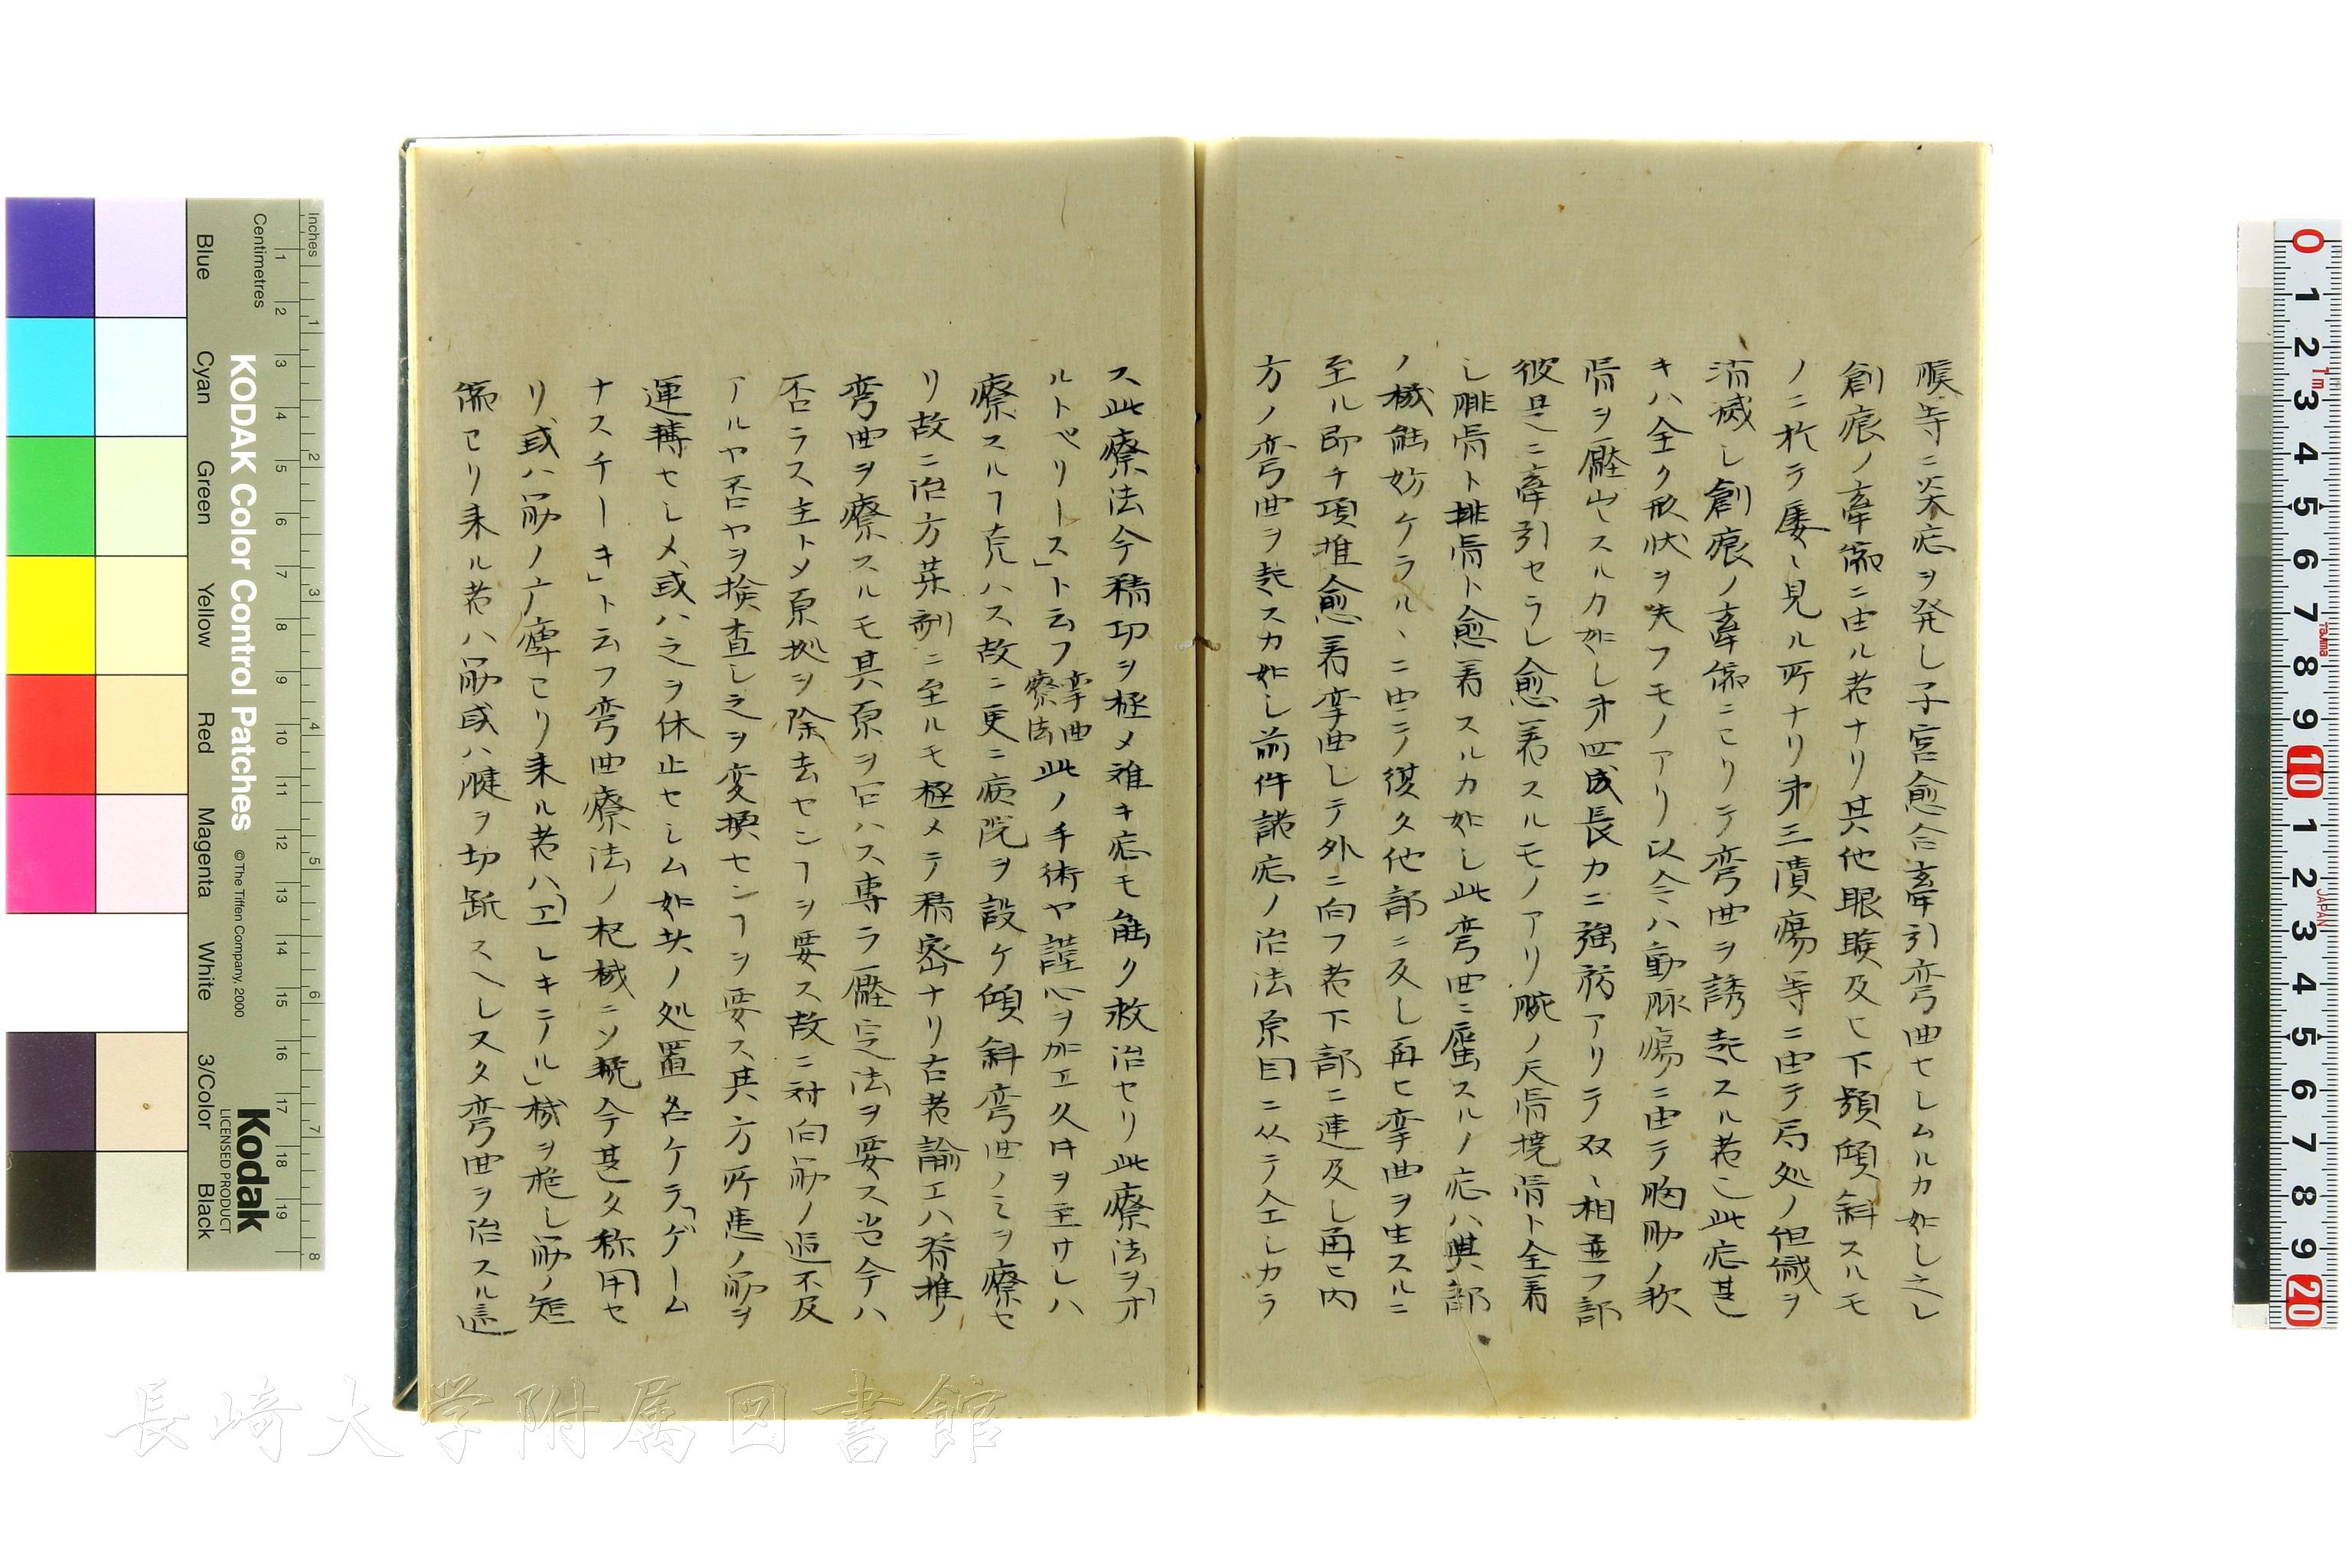 腟等ニ炎症ヲ発し子宮愈合牽引弯曲セしムルカ如し之レ
創痕ノ牽縮ニ由ル者ナリ其他眼瞼及ヒ下顎傾斜スルモ
ノニ於テ屡〻見ル所ナリ第三潰瘍等ニ由テ局処ノ
消滅し創痕ノ牽縮ニヨリテ弯曲ヲ誘起スル者ニ此症甚
キハ全ク形状ヲ失フモノアリ以令ハ動脈瘍ニ由テ胸肋ノ
骨ヲ壓スルカ如し第四成長力ニ強弱アリテ双〻相並フ部
彼是ニ牽引セラレ愈着スルモノアリ腕ノ尺骨撓骨ト全着
し腓骨ト排骨ト愈着スルカ如し此弯曲ニ罹スルノ症ハ其部
ノ機能妨ケラルヽニ由ニテ復タ他部ニ及し再ヒ攣曲ヲ生スルニ
至ル即チ項推愈着攣曲しテ外ニ向フ者下部ニ連及し再ヒ内
方ノ弯曲ヲ起スカ如し前件諸症ノ治法原因ニ从テ全しカラ
ス此療法今積功ヲ極メ難キ症モ能ク救治セリ此療法ヲ「オ
ルトペリース」ト云フ 攣曲療法 此ノ手術ヤ謹心ヲ加エ久日ヲ主ケレハ
療スルヿ克ハス故ニ更ニ病院ヲ設ケ傾斜弯曲ノミヲ療セ
リ故ニ治方其剤ニ至ルモ極メテ精密ナリ右者論エハ脊推ノ
弯曲ヲ療スルモ其原ヲ問ハス専ラ壓定法ヲ要ス当今ハ
否ラス主トメ原拠ヲ除去センヿヲ要ス故ニ対向筋ノ過不及
アルヤ否ヤヲ撿査し之ヲ変換センヿヲ要ス其方所患ノ筋ヲ
運轉セしメ或ハ之ヲ休止セしム如此ノ処置名ケテ「ゲーム
ナスチーキ」ト云フ弯曲療法ノ杞械ニソ輓今甚タ称用セ
リ或ハ筋ノ痺ヨリ来ル者ハ「エレキテル」械ヲ施し筋ノ短
縮ヨリ来ル者ハ筋或ハ腱ヲ切断スヘしスタ弯曲ヲ治スル
長崎大学附属図書館
Inches
Centimetres
KODAK Color Control Patches
© The Tiffen Company, 2000
Kodak
LICENSED PRODUCT
Blue
Cyan
Green
Yellow
Red
Magenta
White
3/Color
Black
1 2 3 4 5 6 7 8 9 10 11 12 13 14 15 16 17 18 19
1 2 3 4 5 6 7 8
0 1 2 3 4 5 6 7 8 9 10 1 2 3 4 5 6 7 8 9 20
1m
Tajima
JAPAN